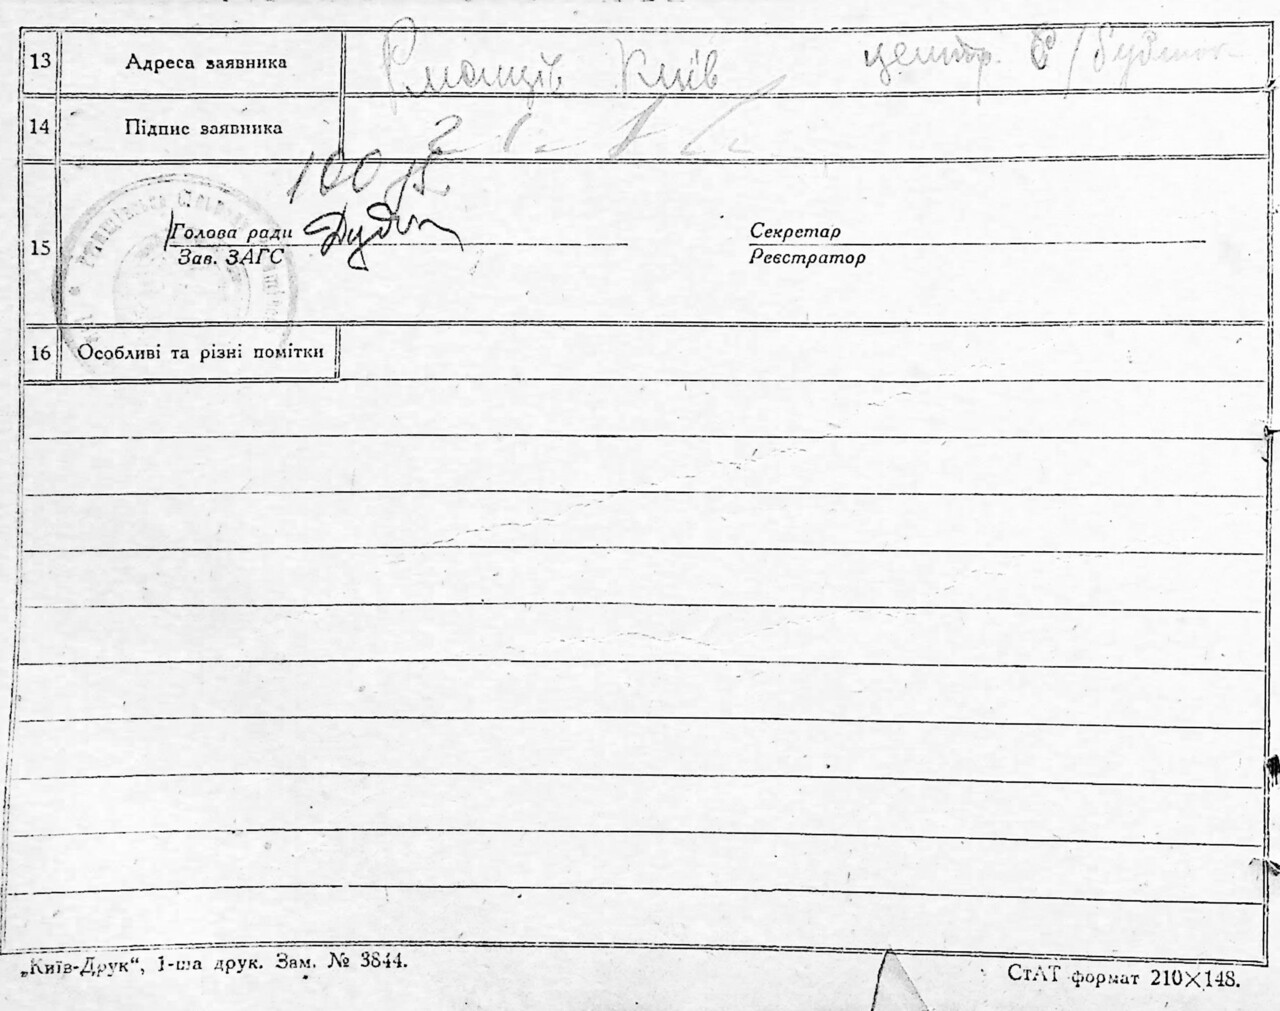 13 Адреса заявника Київ центр.
14 Підпис заявника
100
15 Голова ради Секретар
Зав. ЗАГС Реєстратор
16 Особливі та різні помітки
„Київ-Друк“, 1-ша друк. Зам. № 3844. СтАТ формат 210×148.